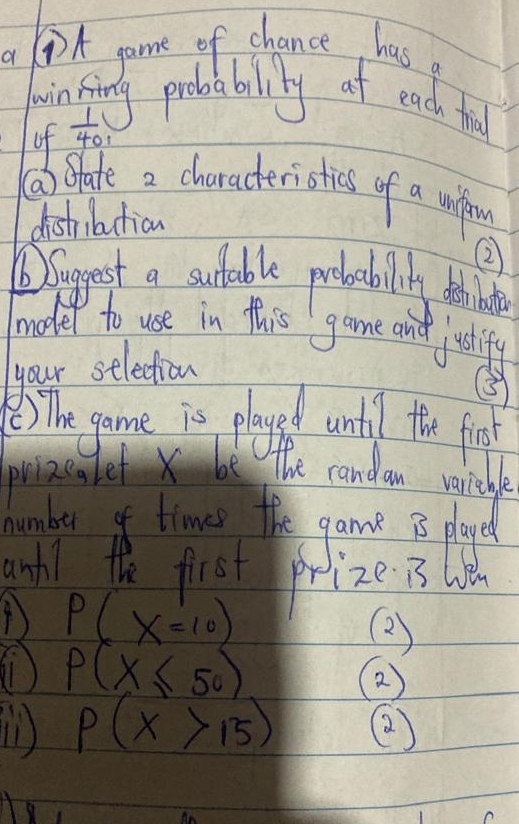 a (1) A game of chance has a
winning probability at each trial
of 1/40.
(a) State 2 characteristics of a uniform
distribution (2)
(b) Suggest a suitable probability distribution
model to use in this game and justify
your selection (3)
(c) The game is played until the first
prize, let X be the random variable
number of times the game is played
until the first prize is won
i) P(X=10) (2)
ii) P(X ≤ 50) (2)
iii) P(X > 15) (2)